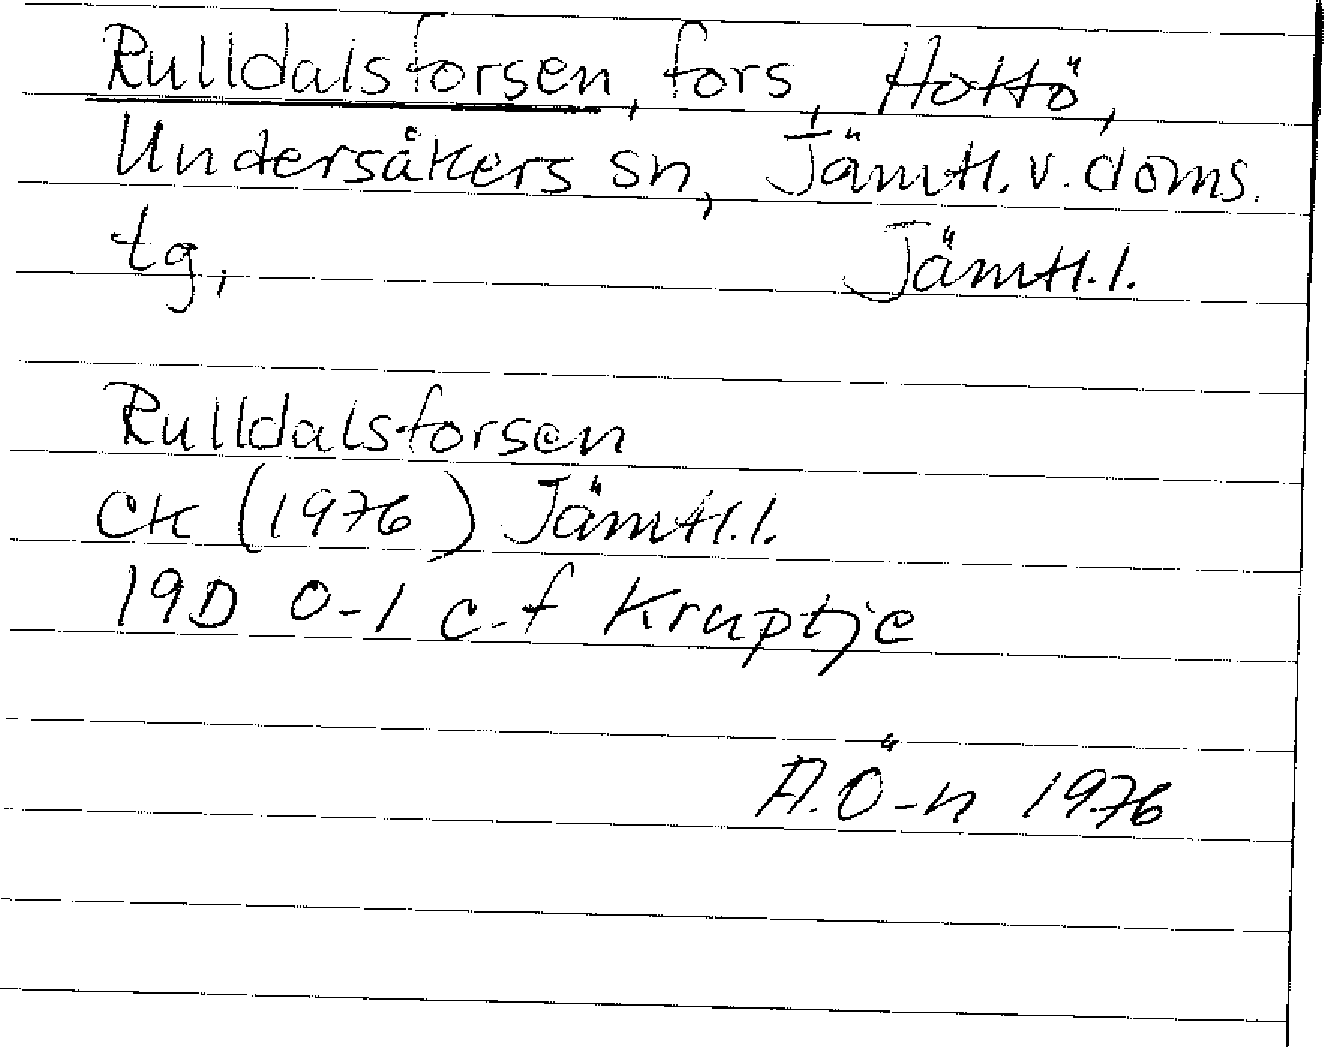 Rulldalsforsen, fors, Hottö,
Undersåkers sn, Jämtl. v. doms.
tg, Jämtl. l.
Rulldalsforsen
CK (1976) Jämtl. l.
19D 0-1 c-f Kruptje
A.Ö-n 1976